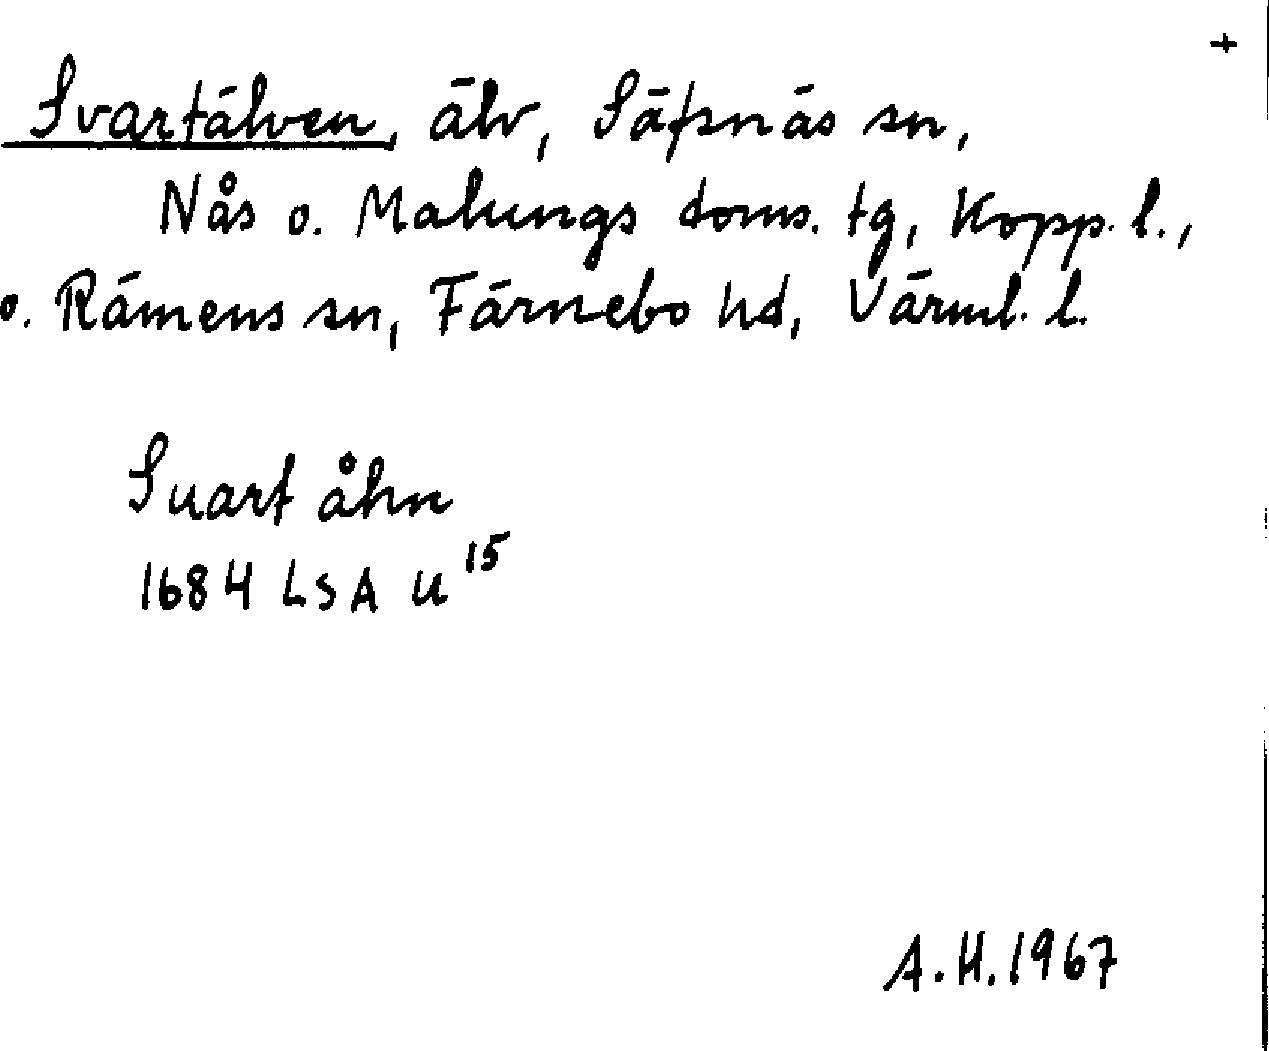 +
Svartälven, älv, Säfsnäs sn,
Nås o. Malungs doms. tg, Kopp. l.,
o. Rämens sn, Färnebo hd, Värml. l.
Suart åhn
1684 LSA U 15
A.H. 1967